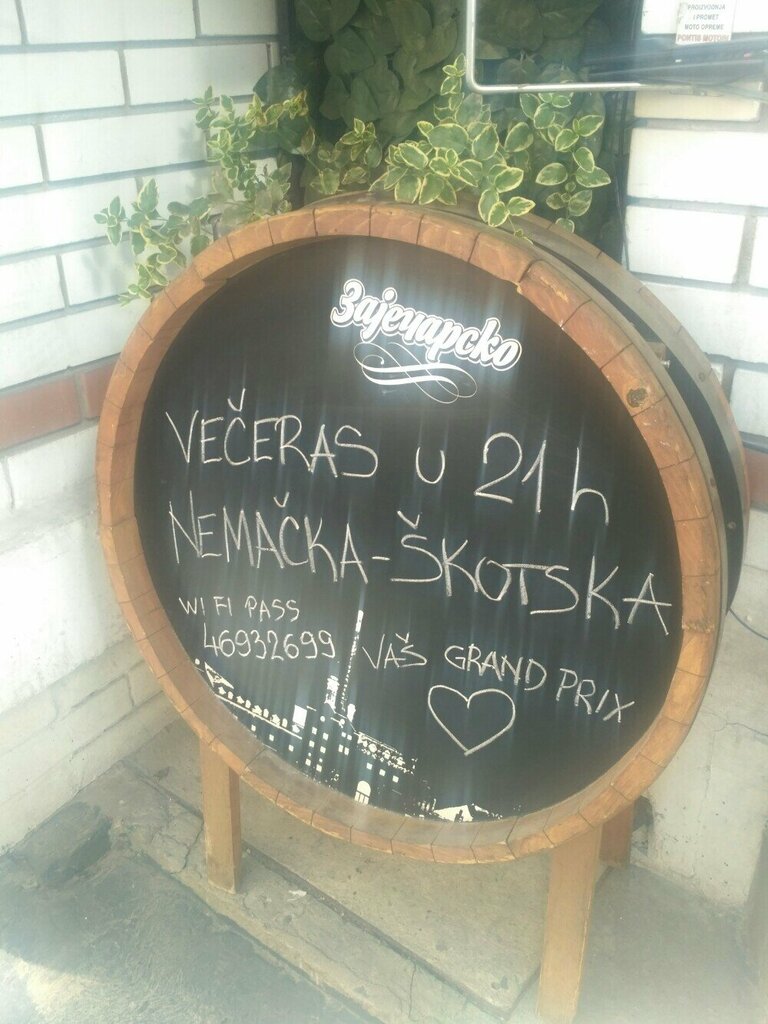 PROIZVODNJA
I PROMET
MOTO OPREME
PONTIS MOTORI
Зајечарско
VEČERAS U 21h
NEMAČKA-ŠKOTSKA
WI FI PASS
46932699
VAŠ GRAND PRIX